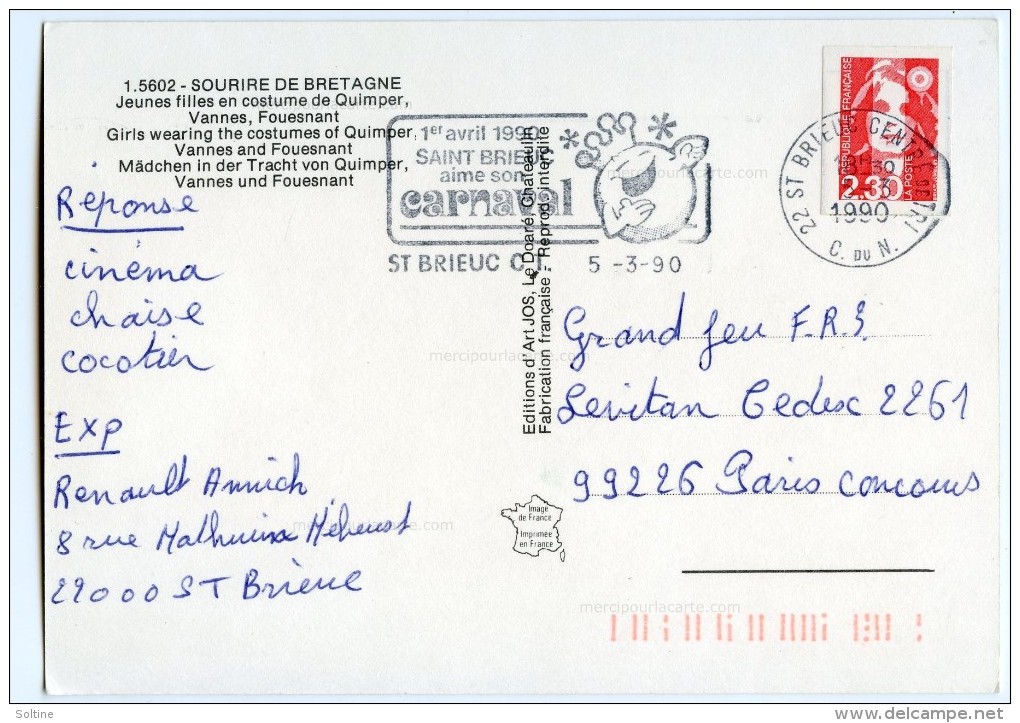 1.5602 - SOURIRE DE BRETAGNE
Jeunes filles en costume de Quimper,
Vannes, Fouesnant
Girls wearing the costumes of Quimper,
Vannes and Fouesnant
Mädchen in der Tracht von Quimper,
Vannes und Fouesnant
Réponse
cinéma
chaise
cocotier
Exp
Renault Annick
8 rue Mathurin Méheust
22000 ST Brieuc
1er avril 1990
SAINT BRIEUC
aime son
carnaval
ST BRIEUC C.T. 5 -3-90
Editions d'Art JOS, Le Doaré, Chateaulin
Fabrication française - Reprod. interdite
RÉPUBLIQUE FRANÇAISE
2.30
LA POSTE
22 ST BRIEUC CENTRE DE TRI
1990
C. DU N.
Grand jeu F.R.3.
Levitan Cedex 2261
99226 Paris Concours
Image
de France
Imprimée
en France
mercipourlacarte.com
mercipourlacarte.com
mercipourlacarte.com
mercipourlacarte.com
mercipourlacarte.com
mercipourlacarte.com
Soltine
www.delcampe.net